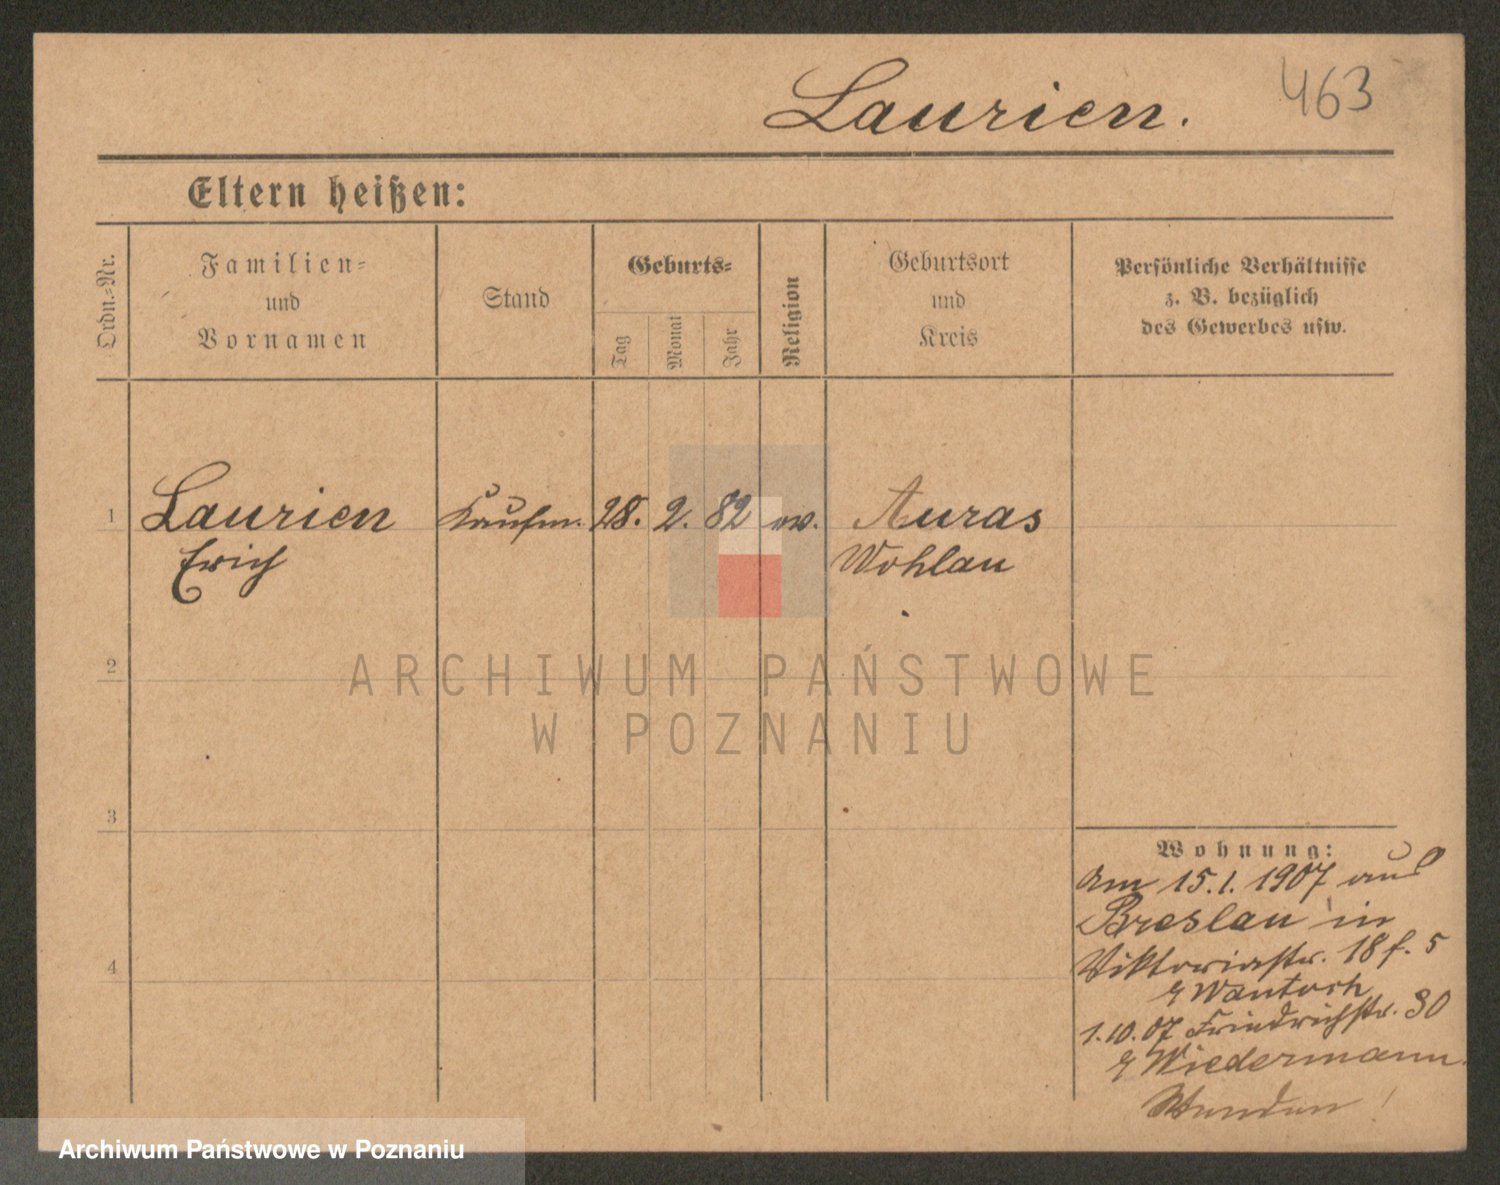 Laurien. 463
Eltern heißen:
Ordn.-Nr.
Familien-
und
Vornamen
Stand
Geburts-
Tag
Monat
Jahr
Religion
Geburtsort
und
Kreis
Persönliche Verhältnisse
z. B. bezüglich
des Gewerbes usw.
1 Laurien Kaufm. 28. 2. 82 ev. Auras
Erich Wohlau
2
ARCHIWUM PAŃSTWOWE
W POZNANIU
3
Wohnung:
am 15.1. 1907 aus
Breslau in
Viktoriastr. 18 f. 5
Wantoch
1.10.07 Friedrichstr. 30
Wiedermann
4
Archiwum Państwowe w Poznaniu